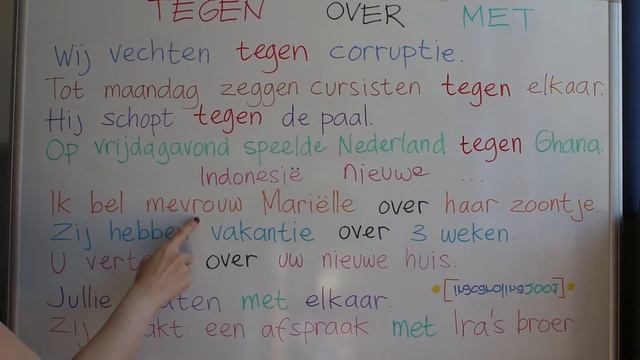 TEGEN OVER MET
Wij vechten tegen corruptie.
Tot maandag zeggen cursisten tegen elkaar.
Hij schopt tegen de paal.
Op vrijdagavond speelde Nederland tegen Ghana.
Indonesië nieuwe ...
Ik bel mevrouw Mariëlle over haar zoontje.
Zij hebben vakantie over 3 weken.
U over uw nieuwe huis.
Jullie met elkaar.
Zij een afspraak met Ira's broer.